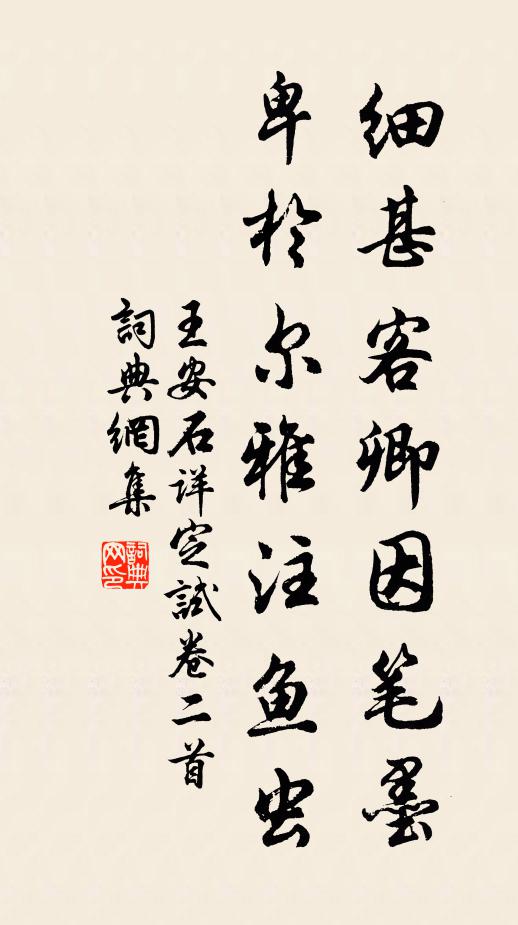 细甚客卿因笔墨
卑於尔雅注鱼虫
王安石详定試卷二首
詞典網集
詞典网印